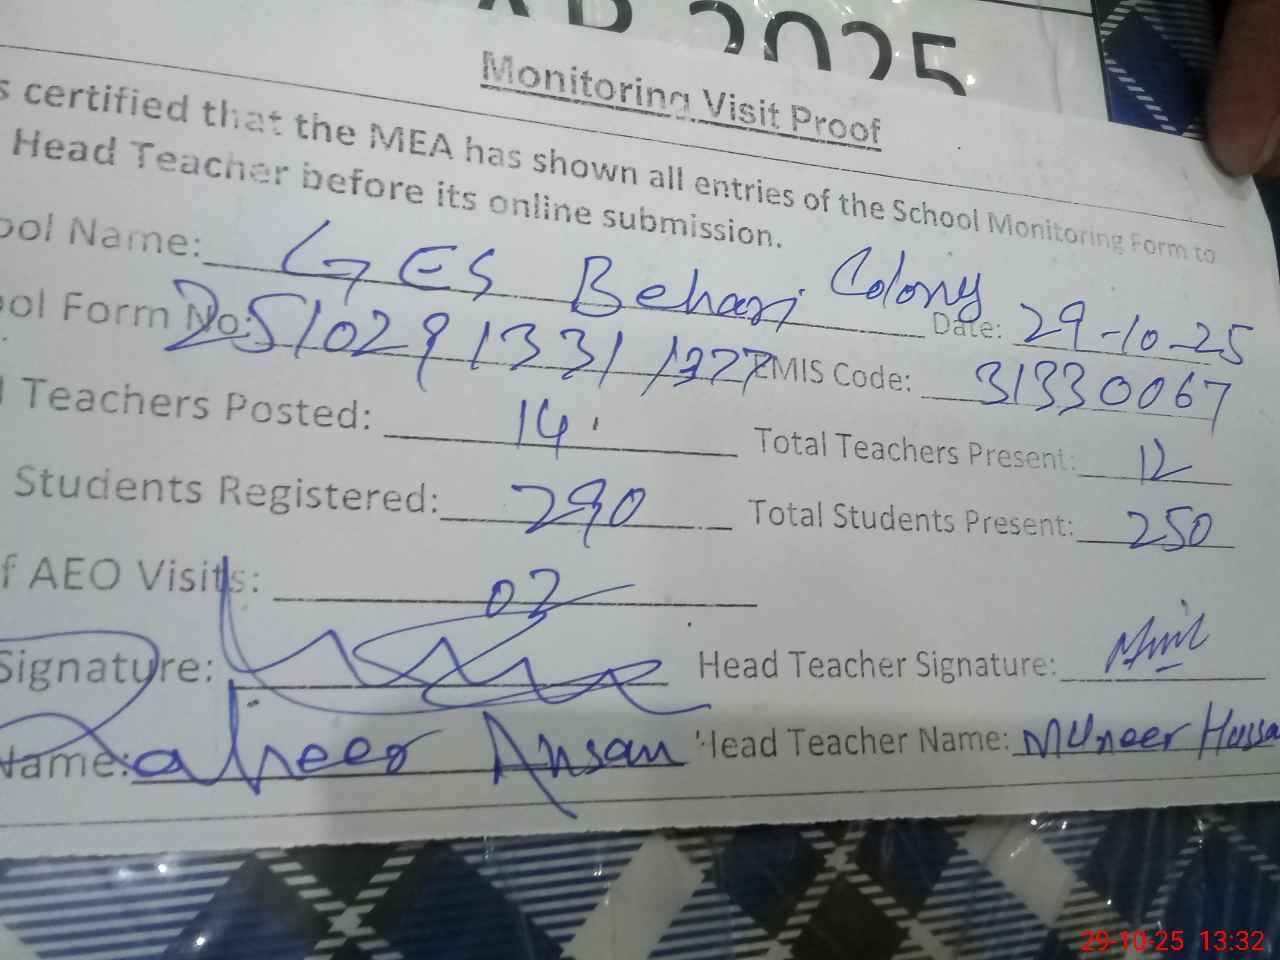 AR 2025
Monitoring Visit Proof
s certified that the MEA has shown all entries of the School Monitoring Form to
Head Teacher before its online submission.
ool Name: GES Behari Colony Date: 29-10-25
ool Form No: D25102913311377 EMIS Code: 31330067
l Teachers Posted: 14 Total Teachers Present: 12
Students Registered: 290 Total Students Present: 250
f AEO Visits: 02
Signature: Head Teacher Signature:
Name: Zaheer Ahsan Head Teacher Name: Muneer Hussa
29-10-25 13:32